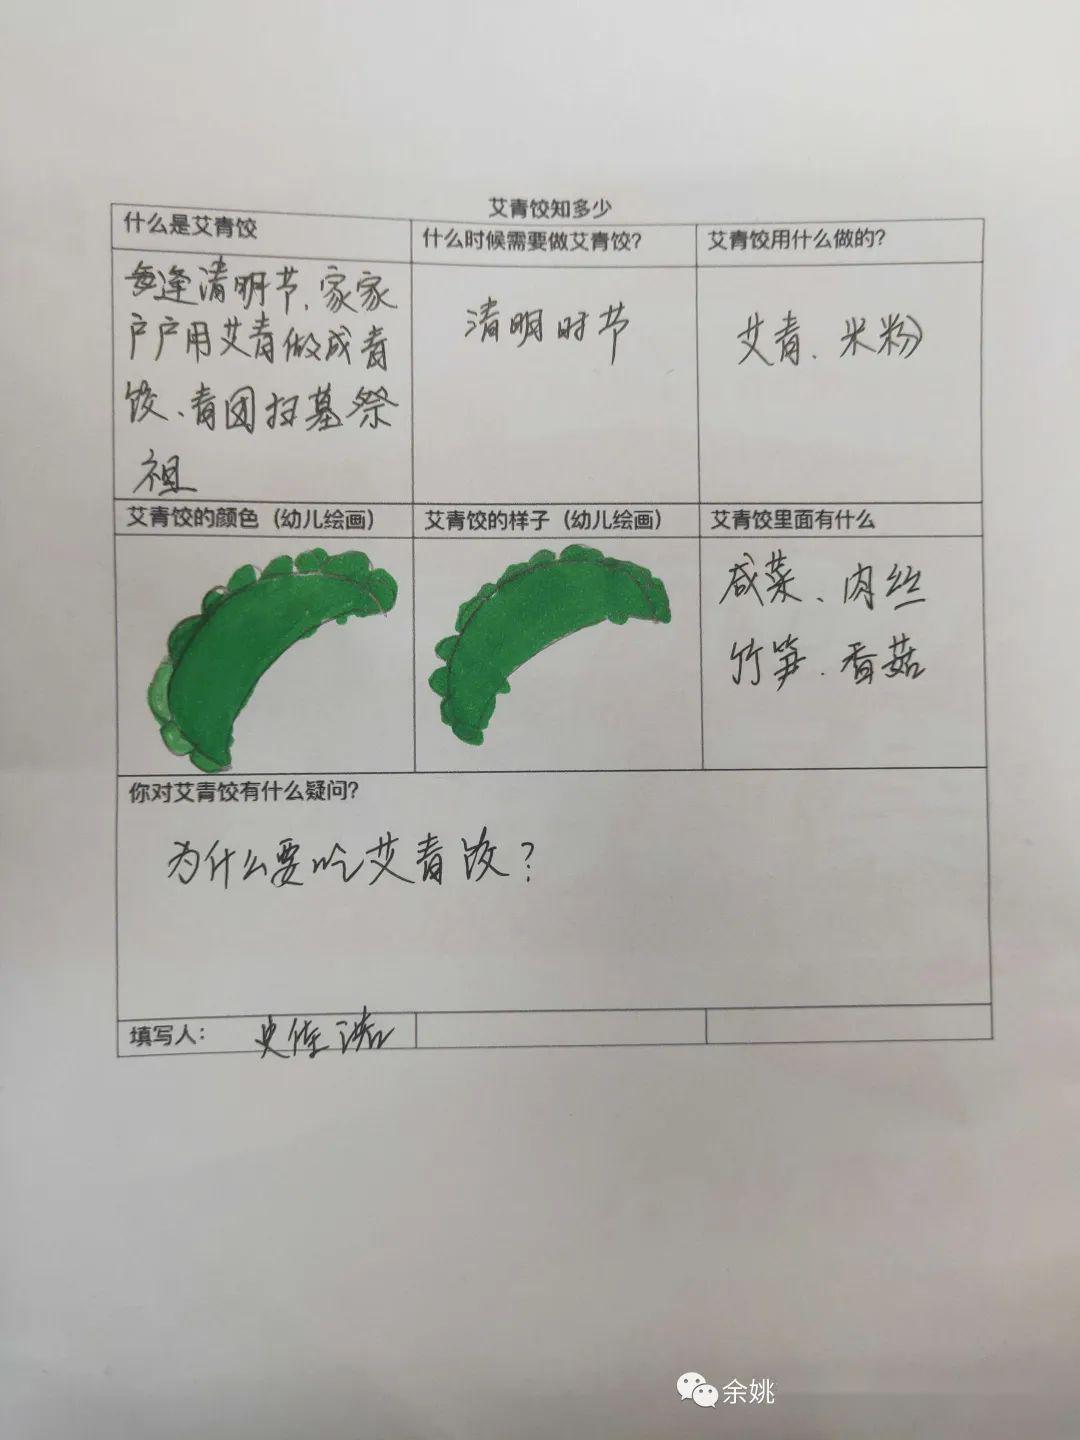 艾青饺知多少
什么是艾青饺
什么时候需要做艾青饺?
艾青饺用什么做的?
每逢清明节、家家
户户用艾青做成青
饺、青团扫墓祭
祖
清明时节
艾青、米粉
艾青饺的颜色（幼儿绘画）
艾青饺的样子（幼儿绘画）
艾青饺里面有什么
咸菜、肉丝
竹笋、香菇
你对艾青饺有什么疑问?
为什么要吃艾青饺?
填写人: 史佳
余姚